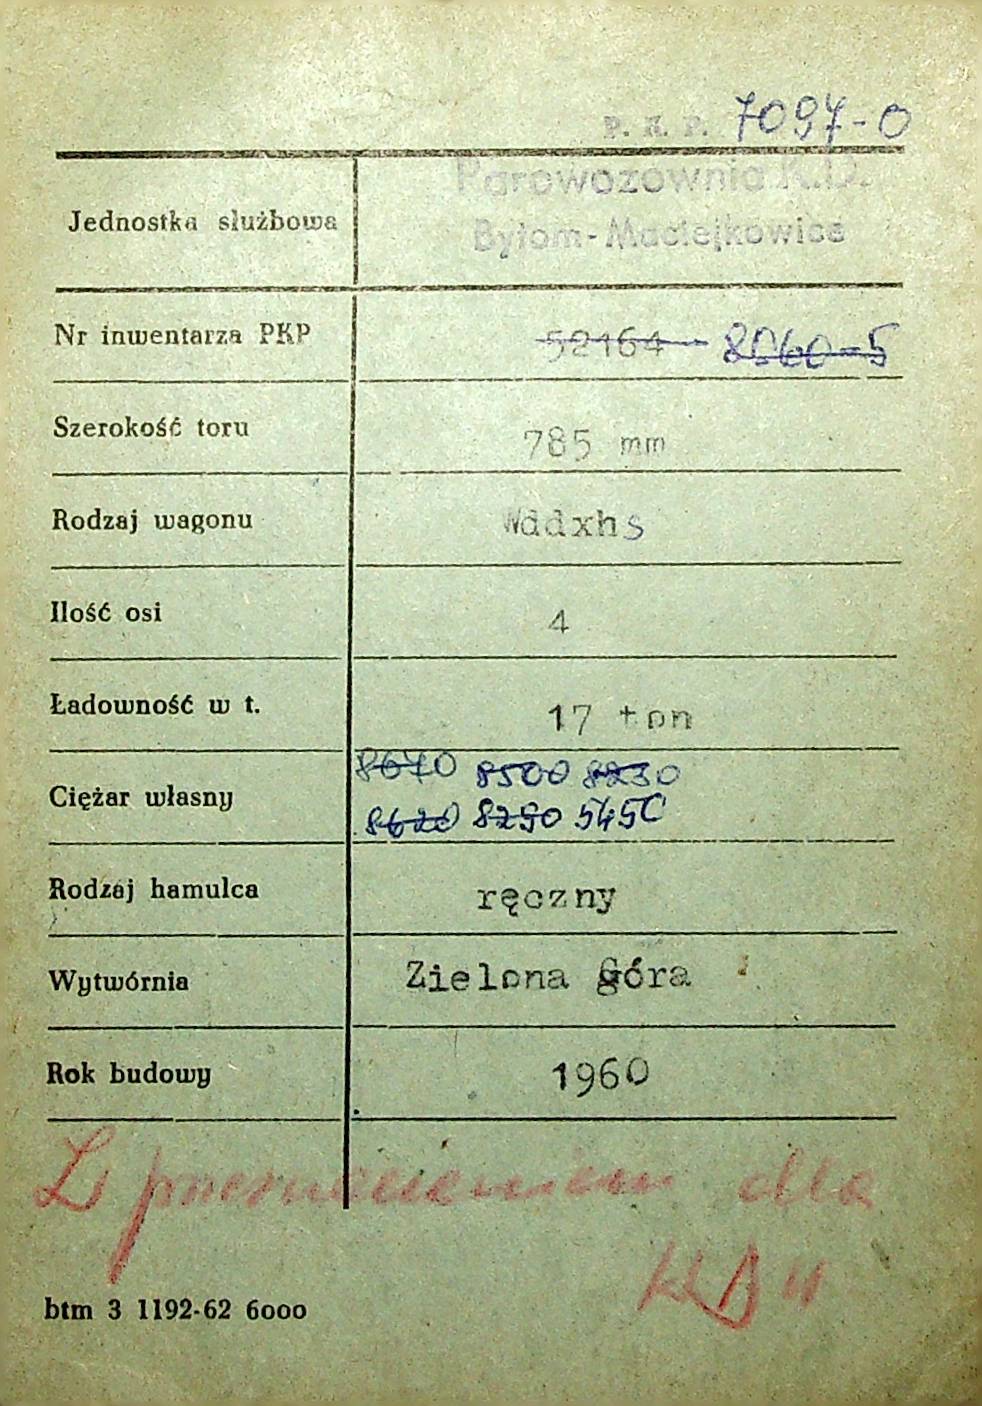 P. K. P. 7097-0
Parowozownia K.D.
Jednostka służbowa
Bytom-Maciejkowice
Nr inwentarza PKP 52164 8060-5
Szerokość toru 785 mm
Rodzaj wagonu Wddxhs
Ilość osi 4
Ładowność w t. 17 ton
8670 8500 8230
Ciężar własny
8620 8290 5450
Rodzaj hamulca ręczny
Wytwórnia Zielona Góra
Rok budowy 1960
Z przeznaczeniem dla
btm 3 1192-62 6000